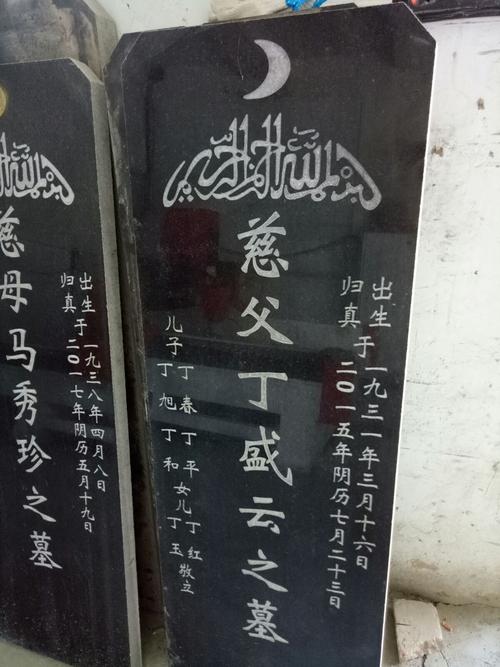 بسم الله الرحمن الرحيم
出生于一九三一年三月十六日
归真于二〇一五年阴历七月二十三日
慈父丁盛云之墓
儿子丁春丁平女儿丁红
丁旭丁和丁玉敬立
بسم الله الرحمن الرحيم
出生于一九三八年四月八日
归真于二〇一七年阴历五月十九日
慈母马秀珍之墓